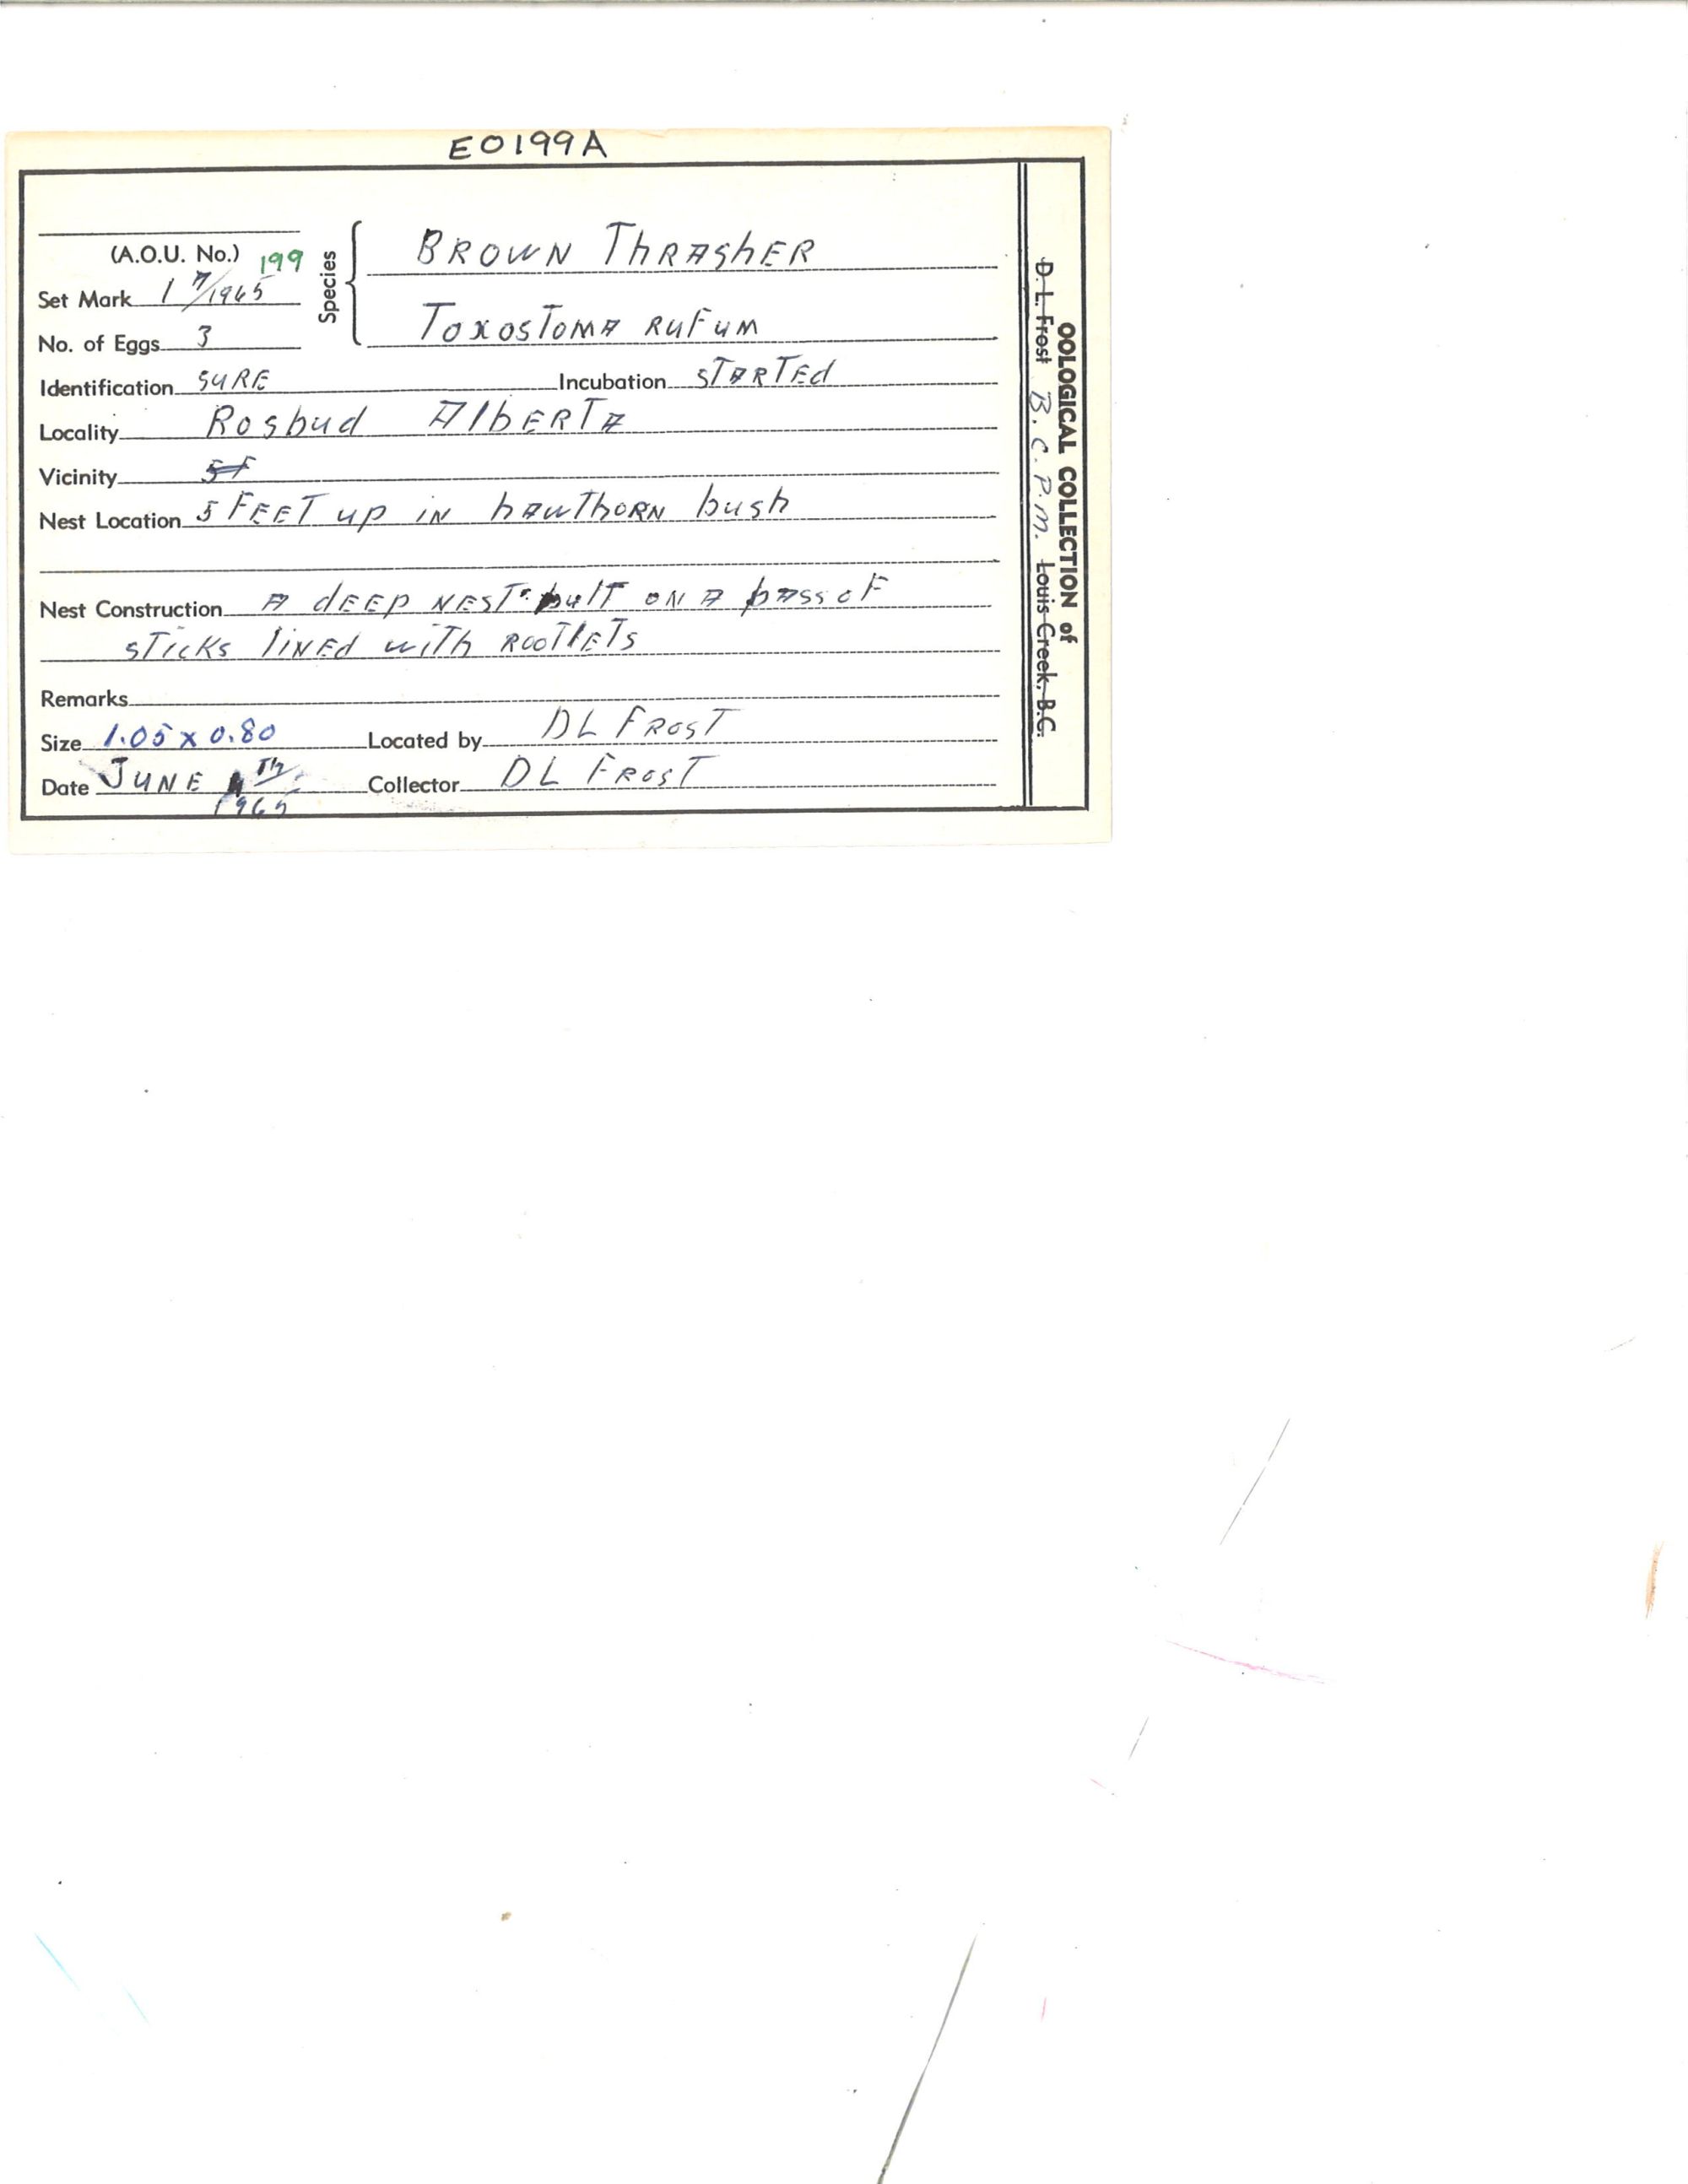 E0199A
(A.O.U. No.) 199
Set Mark 1 7/1965
No. of Eggs 3
Species
BROWN ThRASHER
ToxosToMA RuFuM
Identification SURE Incubation STARTEd
Locality Rosbud AlbERTA
Vicinity 5F
Nest Location 5 FEET up iN hAwThoRN bush
Nest Construction A dEEp NEST built ON A bASS oF
sTicKs liNEd wiTh RooTlETs
Remarks
Size 1.05 x 0.80 Located by DL FROST
Date JUNE Th Collector DL FROST
1965
OOLOGICAL COLLECTION of
D. L. Frost B.C.P.M. Louis Creek, B.C.